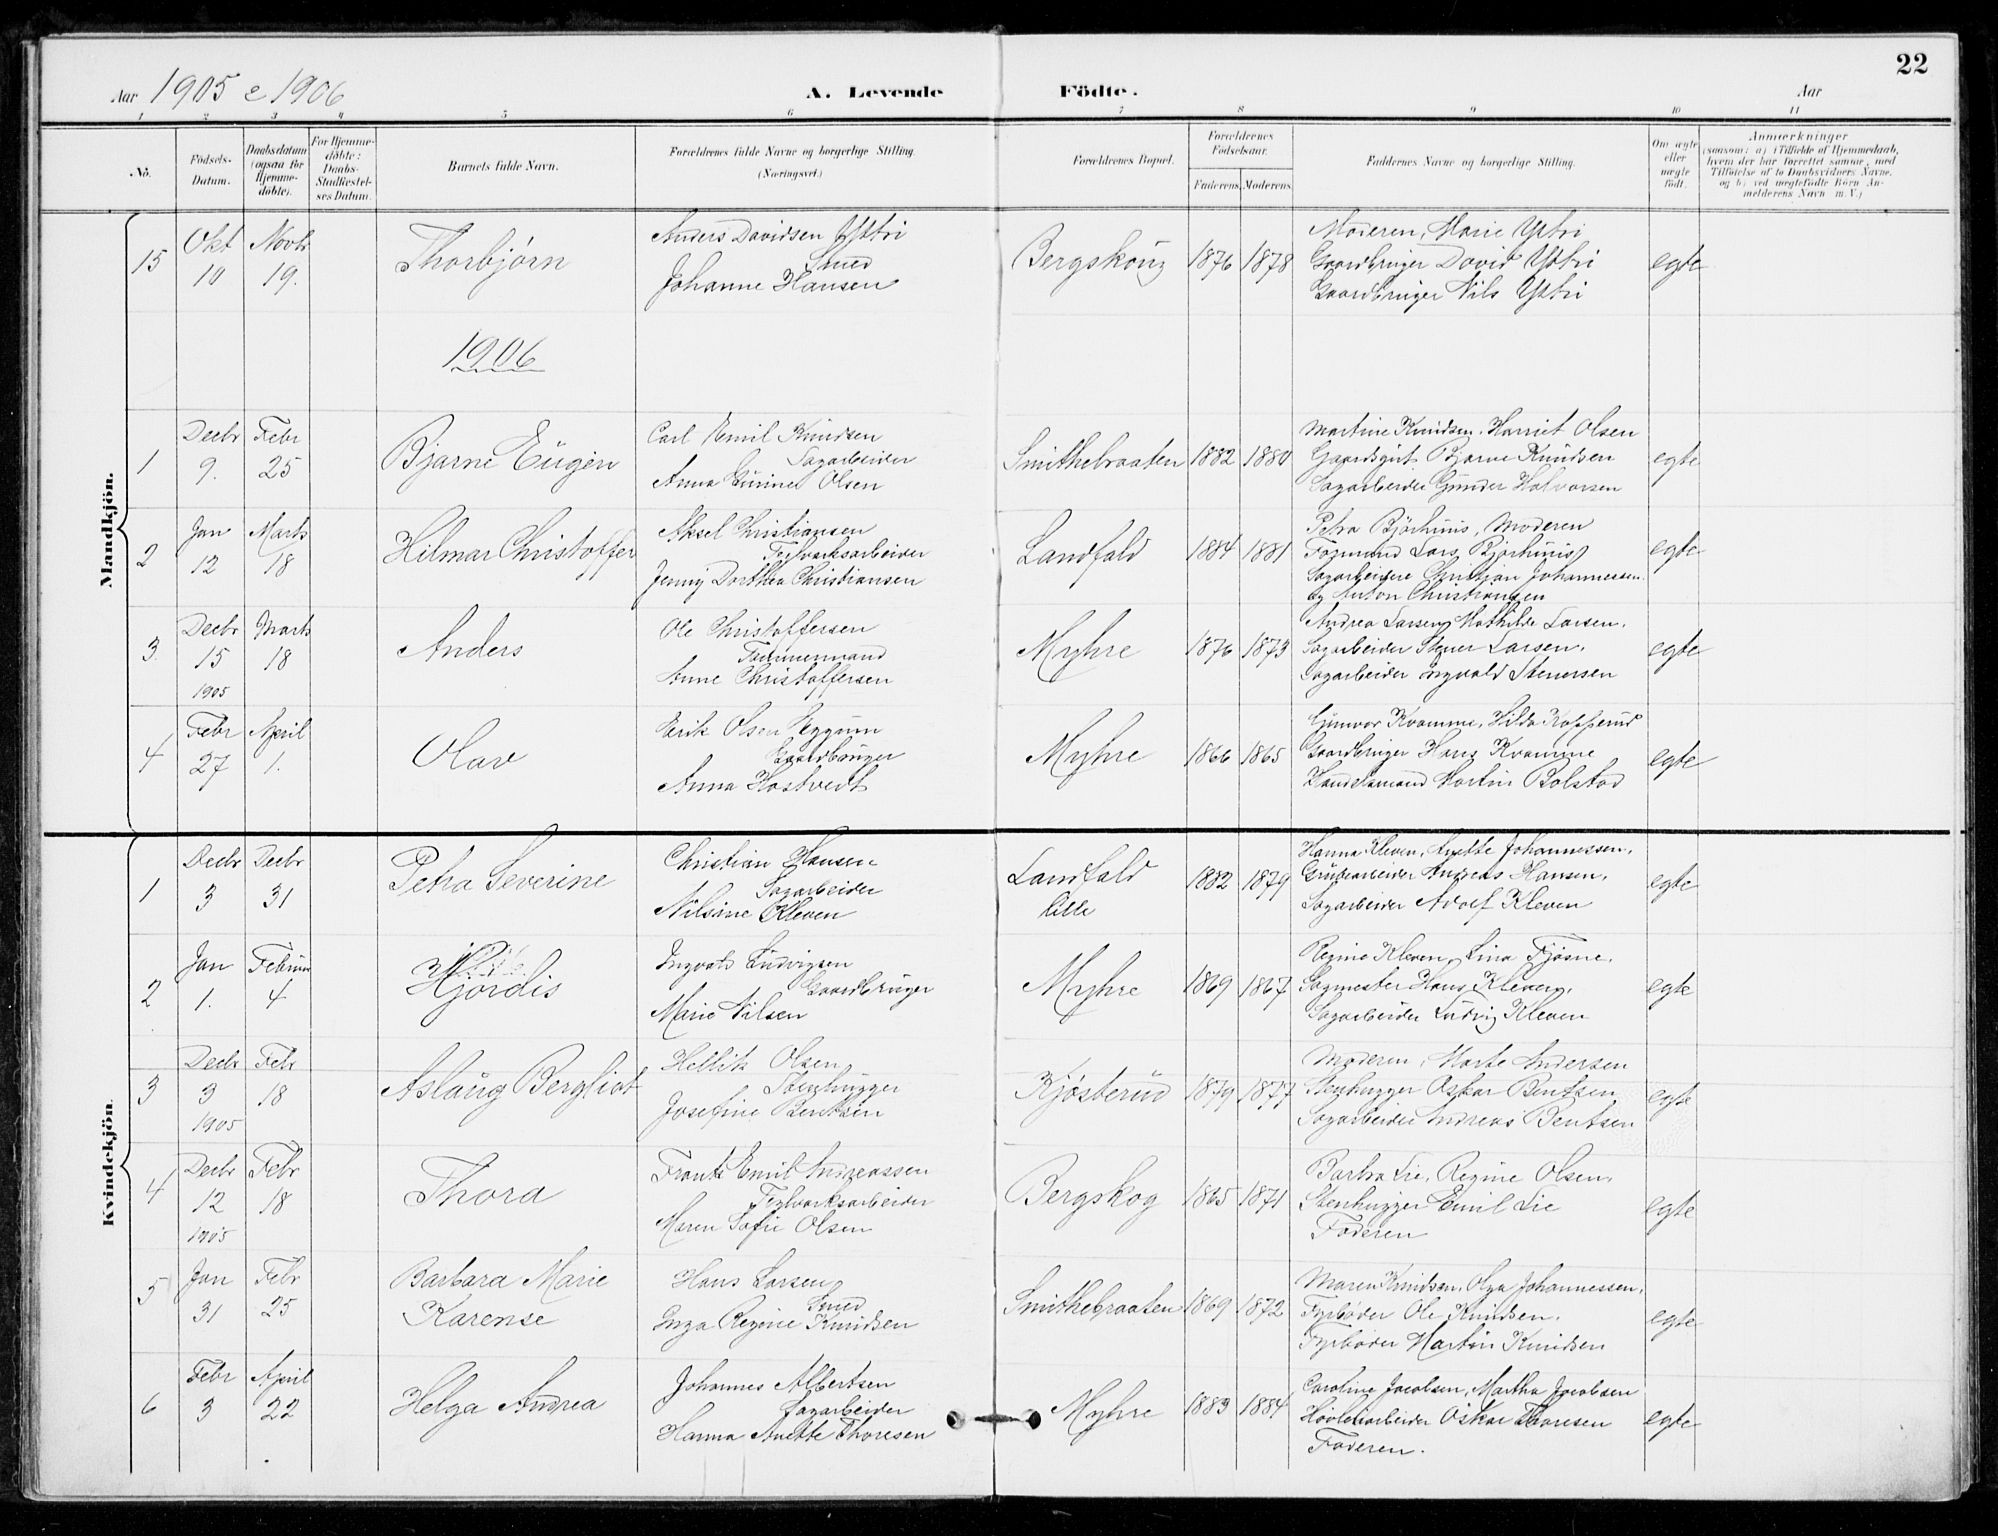 22
Aar 1905 & 1906 A. Levende Födte. Aar
1 2 3 4 5 6 7 8 9 10 11
No.
Födsels-Datum.
Daabsdatum (ogsaa for Hjemmedöbte).
For Hjemmedöbte: Daabs-Stadfæstelses Datum.
Barnets fulde Navn.
Forældrenes fulde Navne og borgerlige Stilling. (Næringsvei.)
Forældrenes Bopæl.
Forældrenes Födselsaar.
Faderens. Moderens.
Faddernes Navne og borgerlige Stilling.
Om ægte eller uægte födt.
Anmærkninger
(saasom: a) i Tilfælde af Hjemmedaab, hvem der har forrettet samme, med Tilföielse af to Daabsvidners Navne, og b) ved uægtefödte Börn Anmelderens Navn m. V.)
Mandkjön.
15 Okt 10 Novbr 19. Thorbjørn
Anders Davidsen Ystri
Smed
Johanne Hansen
Bergskoug 1876 1878
Moderen, Marie Ystri
Gaardbruger David Ystri
Gaardbruger Nils Ystri
egte
1906
1 Decbr 9. Febr 25 Bjarne Eugen
Carl Emil Knudsen
Sagarbeider
Anna Gurine Olsen
Smithebraaten 1882 1880
Martine Knudsen, Harriet Olsen
Gaardsgut Bjarne Knudsen
Sagarbeider Gunder Halvorsen
egte
2 Jan 12 Marts 18 Hilmar Christoffer
Aksel Christiansen
Teglværksarbeider
Jenny Dorthea Christiansen
Landfald 1884 1881
Petra Björhuus, Moderen
Formand Lars Björhuus
Sagarbeidere Christian Johannessen
og Anton Christiansen
egte
3. Decbr 15 1905 Marts 18 Anders
Ole Christoffersen
Tømmermand
Anne Christoffersen
Myhre 1876 1873
Andrea Larsen, Mathilde Larsen,
Sagarbeider Stener Larsen,
Sagarbeider Ingvald Stenersen
egte
4 Febr 27 April 1. Olav
Erik Olsen Eggum
Gaardbruger
Anna Hostvedt
Myhre 1866 1865
Gunvor Kvamme, Hilda Kopperud
Gaardbruger Hans Kvamme
Handelsmand Martin Bolstad
egte
Kvindekjön.
1 Decbr 3 Decbr 31 Petra Severine
Christian Hansen
Sagarbeider
Nilsine Kleven
Landfald lille 1882 1879
Hanna Kleven, Anette Johannessen,
Grubearbeider Andreas Hansen,
Sagarbeider Adolf Kleven
egte
2 Jan 1. Februar 4 Hjørdis
Ingvald Ludvigsen
Gaardbruger
Marie Nilsen
Myhre 1869 1867
Regine Kleven, Lina Fjøsne,
Sagmester Hans Kleven,
Sagarbeider Ludvig Kleven
egte
3 Decbr 3 1905 Febr 18 Aslaug Bergliot
Hellik Olsen
Stenhugger
Josefine Bentsen
Kjøsterud 1879 1877
Moderen, Marte Andersen
Stenhugger Oskar Bentsen
Sagarbeider Andreas Bentsen
egte
4 Decbr 12 1905 Febr 18 Thora
Frants Emil Andreassen
Teglværksarbeider
Maren Sofie Olsen
Bergskog 1865 1871
Barbra Lie, Regine Olsen,
Stenhugger Emil Lie
Faderen
egte
5 Jan 31 Febr 25 Barbara Marie
Karense
Hans Larsen
Smed
Inga Regine Knudsen
Smithebraaten 1869 1872
Maren Knudsen, Olga Johannessen,
Fyrbøder Ole Knudsen,
Fyrbøder Martin Knudsen
egte
6 Febr 3 April 22 Helga Andrea
Johannes Albertsen
Sagarbeider
Hanna Anette Thoresen
Myhre 1883 1884
Caroline Jacobsen, Martha Jacobsen
Høvleriarbeider Oskar Thoresen
Faderen.
egte